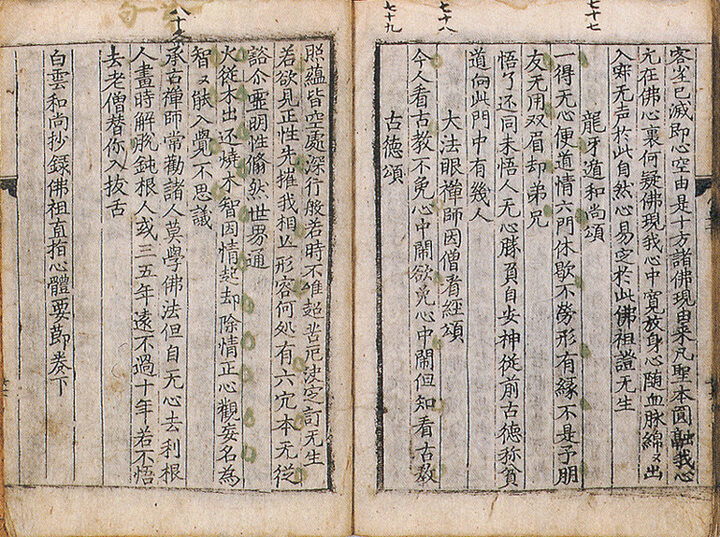 七十七
七十八
七十九
客尘已滅即心空由是十方諸佛現由来凡聖本圓融我心
元在佛心裏何疑佛現我心中寬放身心随血脉綿〻出
入寂无声於此自然心易定於此佛祖證无生
龍牙遁和尚頌
一得无心便道情六門休歇不勞形有緣不是予朋
友无用双眉却弟兄
悟了还同未悟人无心勝負自安神從前古德称貧
道向此門中有幾人
大法眼禪師因僧看經頌
今人看古教不免心中鬧欲免心中鬧但知看古教
古德頌
八十
照蘊皆空處深行般若時不唯超苦厄決定証无生
若欲見正性先摧我相丘形容何処有六穴本无從
谽尒霊明性翛然世界通
火從木出还燒木智因情起却除情正心觀妄名為
智〻䏻入覺不思議
承古禪師常勸諸人莫學佛法但自无心去利根
人盡時解脫鈍根人或三五年遠不過十年若不悟
去老僧替你入拔舌
白雲和尚抄録佛祖直指心體要節卷下